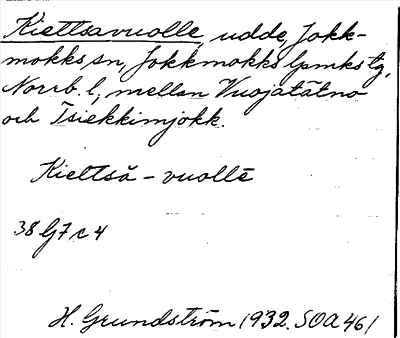 Kiettsavuolle, udde, Jokk-
mokks sn, Jokkmokks lpmks tg,
Norrb. l, mellan Vuojatätno
och Tsiekkimjokk.
Kiettså - vuollē
38 G7 c 4
H. Grundström 1932. SOA 461